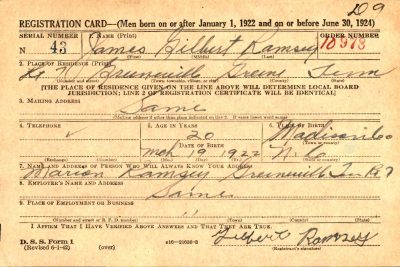 D09
REGISTRATION CARD—(Men born on or after January 1, 1922 and on or before June 30, 1924)
SERIAL NUMBER 1. NAME (Print) ORDER NUMBER
N 43 James Gilbert Ramsey 10979
(First) (Middle) (Last)
2. PLACE OF RESIDENCE (Print)
Greeneville Greene Tenn
(Number and street) (Town, township, village, or city) (County) (State)
[THE PLACE OF RESIDENCE GIVEN ON THE LINE ABOVE WILL DETERMINE LOCAL BOARD
JURISDICTION; LINE 2 OF REGISTRATION CERTIFICATE WILL BE IDENTICAL]
3. MAILING ADDRESS
Same
[Mailing address if other than place indicated on line 2. If same insert word same]
4. TELEPHONE 5. AGE IN YEARS 6. PLACE OF BIRTH
20 Madison Co
DATE OF BIRTH
Mch 19 1922 N. C.
(Exchange) (Number) (Mo.) (Day) (Yr.) (State or country)
7. NAME AND ADDRESS OF PERSON WHO WILL ALWAYS KNOW YOUR ADDRESS
Marion Ramsey Greeneville
8. EMPLOYER'S NAME AND ADDRESS
Same
9. PLACE OF EMPLOYMENT OR BUSINESS
(Number and street or R. F. D. number) (Town) (County) (State)
I AFFIRM THAT I HAVE VERIFIED ABOVE ANSWERS AND THAT THEY ARE TRUE.
D. S. S. Form 1
(Revised 6-1-42) (over) Gilbert Ramsey
(Registrant's signature)